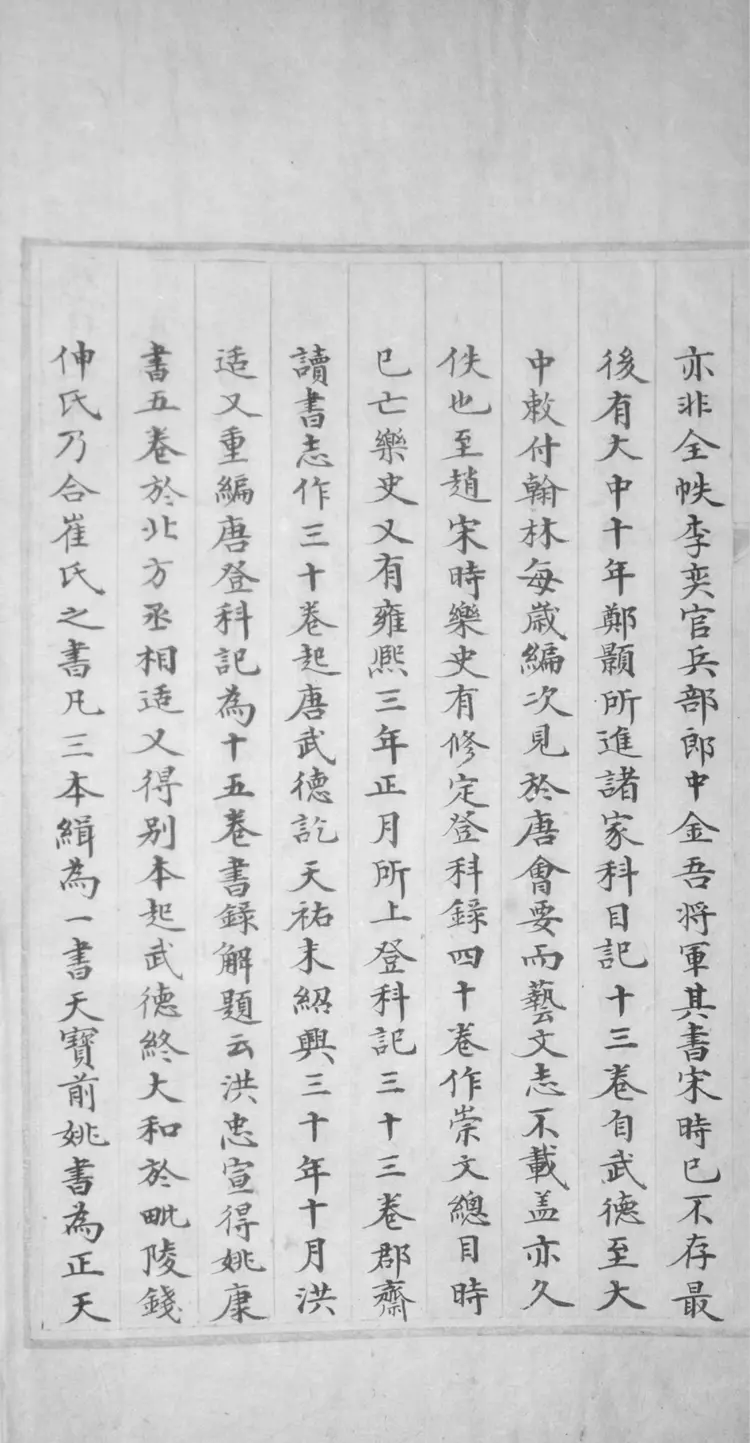 亦非全帙李奕官兵部郎中金吾將軍其書宋時已不存最
後有大中十年鄭顥所進諸家科目記十三卷自武德至大
中敕付翰林每歲編次見於唐會要而藝文志不載盖亦久
佚也至趙宋時樂史有修定登科錄四十卷作崇文總目時
已亡樂史又有雍熙三年正月所上登科記三十三卷郡齋
讀書志作三十卷起唐武德訖天祐末紹興三十年十月洪
适又重編唐登科記為十五卷書錄解題云洪忠宣得姚康
書五卷於北方丞相适又得别本起武德終大和於毗陵錢
伸氏乃合崔氏之書凡三本緝為一書天寶前姚書為正天